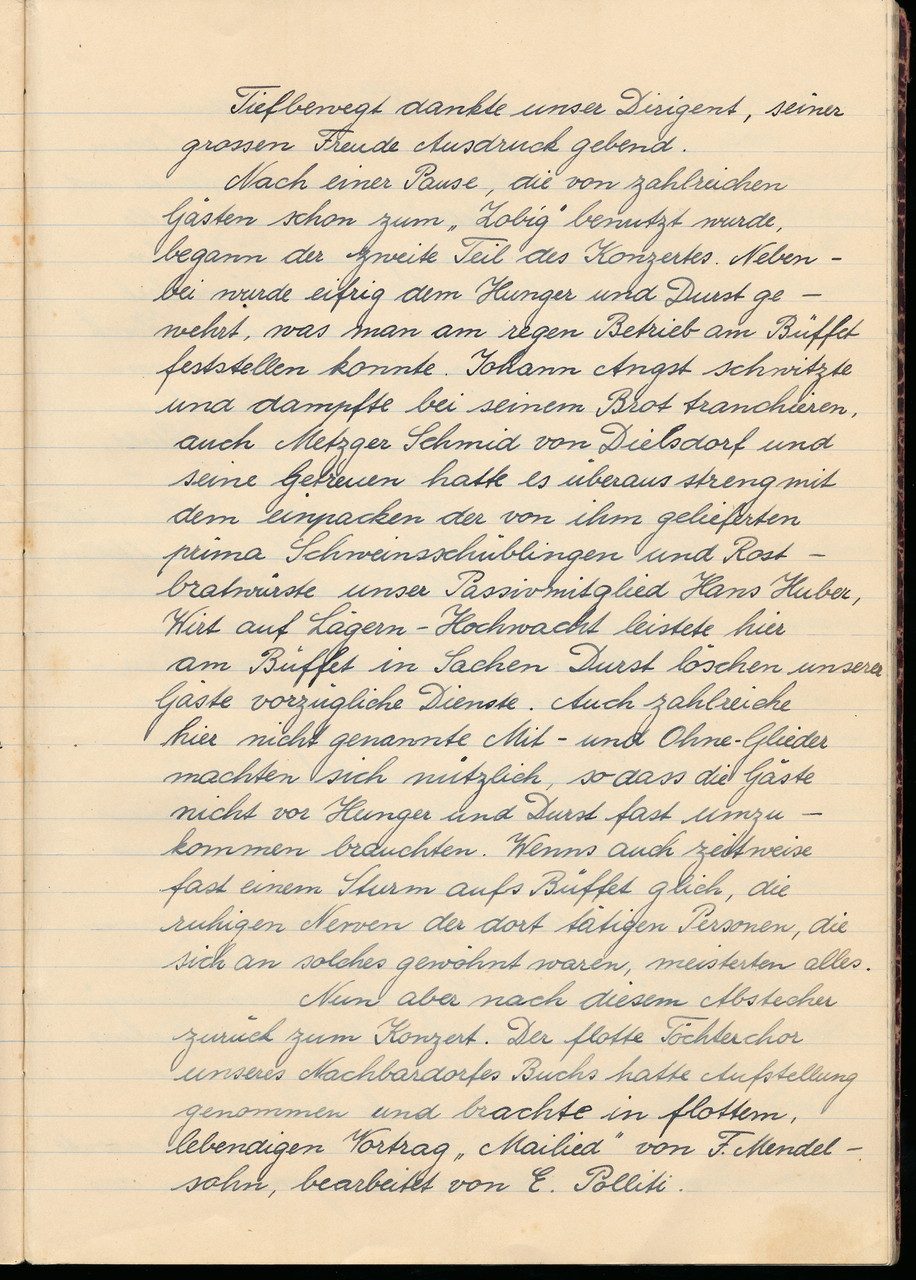 Tiefbewegt dankte unser Dirigent, seiner
grossen Freude Ausdruck gebend.
Nach einer Pause, die von zahlreichen
Gästen schon zum „Zobig" benutzt wurde,
begann der zweite Teil des Konzertes. Neben-
bei wurde eifrig dem Hunger und Durst ge-
wehrt, was man am regen Betrieb am Büffet
feststellen konnte. Johann Angst schwitzte
und dampfte bei seinem Brot tranchieren,
auch Metzger Schmid von Dielsdorf und
seine Getreuen hatte es überaus streng mit
dem einpacken der von ihm gelieferten
prima Schweinsschüblingen und Rost-
bratwürste unser Passivmitglied Hans Huber,
Wirt auf Lägern-Hochwacht leistete hier
am Büffet in Sachen Durst löschen unserer
Gäste vorzügliche Dienste. Auch zahlreiche
hier nicht genannte Mit- und Ohne-Glieder
machten sich nützlich, so dass die Gäste
nicht vor Hunger und Durst fast umzu-
kommen brauchten. Wenns auch zeitweise
fast einem Sturm aufs Büffet glich, die
ruhigen Nerven der dort tätigen Personen, die
sich an solches gewöhnt waren, meisterten alles.
Nun aber nach diesem Abstecher
zurück zum Konzert. Der flotte Töchterchor
unseres Nachbardorfes Buchs hatte Aufstellung
genommen und brachte in flottem,
lebendigen Vortrag „Mailied" von F. Mendel-
sohn, bearbeitet von E. Polliti.